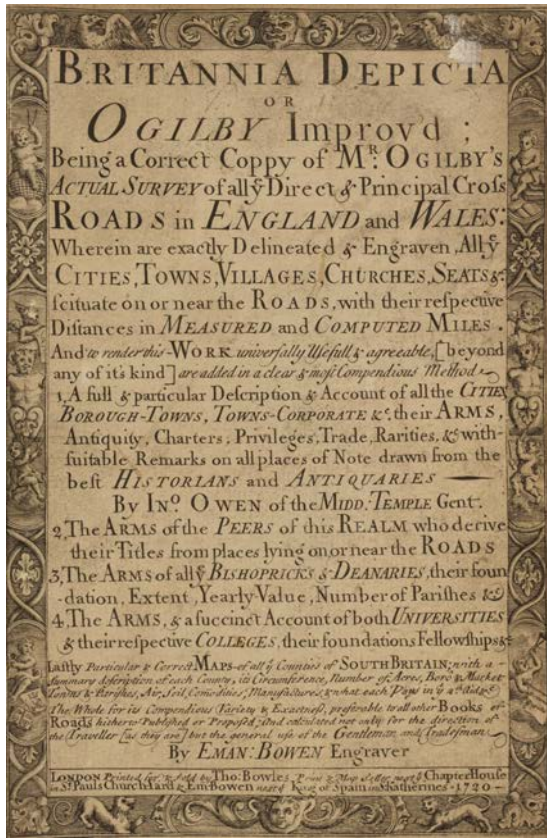 BRITANNIA DEPICTA
OR
OGILBY Improv'd;
Being a Correct Coppy of Mr. OGILBY'S
ACTUAL SURVEY of all ye Direct & Principal Cross
ROADS in ENGLAND and WALES:
Wherein are exactly Delineated & Engraven, All ye
CITIES, TOWNS, VILLAGES, CHURCHES, SEATS &c.
scituate on or near the ROADS, with their respective
Distances in MEASURED and COMPUTED MILES.
And to render this WORK universally Usefull & agreeable, [beyond
any of it's kind] are added in a clear & most Compendious Method
1, A full & particular Description & Account of all the CITIES
BOROUGH-TOWNS, TOWNS-CORPORATE &c. their ARMS,
Antiquity, Charters, Privileges, Trade, Rarities, &c. with
suitable Remarks on all places of Note drawn from the
best HISTORIANS and ANTIQUARIES
By Ino. OWEN of the MIDD. TEMPLE Gent.
2, The ARMS of the PEERS of this REALM who derive
their Titles from places lying on, or near the ROADS
3, The ARMS of all ye BISHOPRICKS & DEANARIES, their foun
-dation, Extent, Yearly Value, Number of Parishes &c
4, The ARMS, & a succinct Account of both UNIVERSITIES
& their respective COLLEGES, their foundations Fellowships &c
Lastly Particular & Correct MAPS of all ye Counties of SOUTH BRITAIN; with a
Summary description of each County, its Circumference, Number of Acres, Boro' & Market
Towns & Parishes, Air, Soil, Comodities, Manufactures, & what each Pays in ye Aid &c
The Whole for its Compendious Variety & Exactness, preferable to all other Books of
Roads hitherto Published or Proposed; And calculated not only for the direction of
the Traveller [as they are] but the general use of the Gentleman and Tradesman
By EMAN: BOWEN Engraver
LONDON Printed for, & Sold by Tho: Bowles, Print & Map Seller next ye Chapter House
in St. Pauls Church Yard & Em: Bowen near ye King of Spain in St Katherines 1720